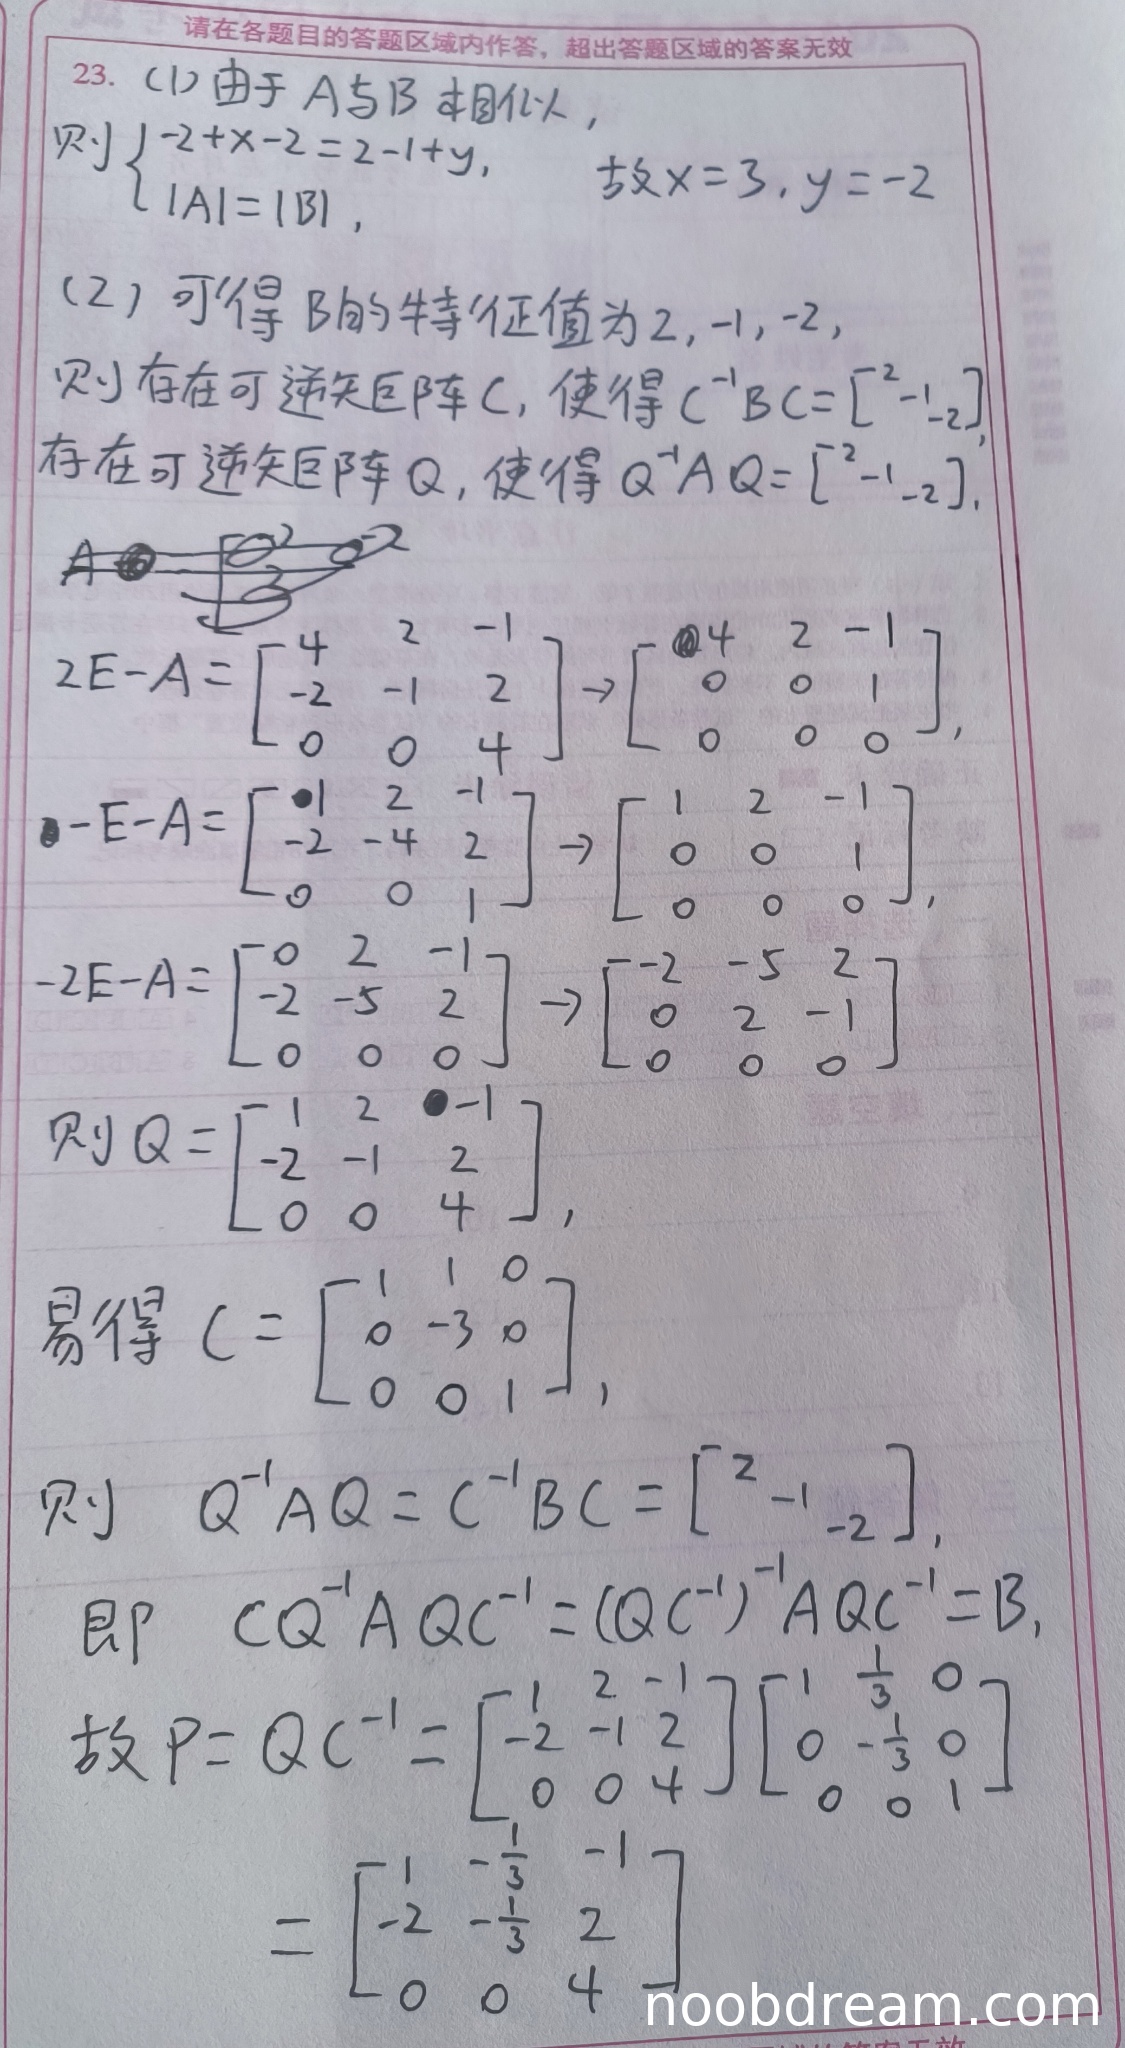 请在各题目的答题区域内作答，超出答题区域的答案无效
23. (1) 由于 A与B 相似，
则 { -2+x-2=2-1+y,
|A|=|B|,
故x=3, y=-2
(2) 可得 B的特征值为2, -1, -2,
则存在可逆矩阵C, 使得 C⁻¹BC=[2 -1 -2],
存在可逆矩阵Q, 使得 Q⁻¹AQ=[2 -1 -2].
2E-A= [4 2 -1; -2 -1 2; 0 0 4] → [4 2 -1; 0 0 1; 0 0 0],
-E-A= [1 2 -1; -2 -4 2; 0 0 1] → [1 2 -1; 0 0 1; 0 0 0],
-2E-A= [0 2 -1; -2 -5 2; 0 0 0] → [-2 -5 2; 0 2 -1; 0 0 0]
则Q= [1 2 -1; -2 -1 2; 0 0 4],
易得 C= [1 1 0; 0 -3 0; 0 0 1],
则 Q⁻¹AQ = C⁻¹BC = [2 -1 -2],
即 CQ⁻¹AQC⁻¹=(QC⁻¹)⁻¹AQC⁻¹=B,
故P= QC⁻¹= [1 2 -1; -2 -1 2; 0 0 4] [1 1/3 0; 0 -1/3 0; 0 0 1]
= [1 -1/3 -1; -2 -1/3 2; 0 0 4]
noobdream.com